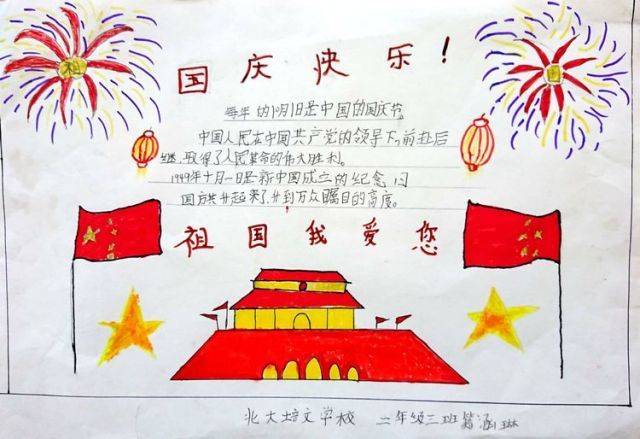 国庆快乐!
每年的10月1日是中国的国庆节。
中国人民在中国共产党的领导下,前赴后
继,取得了人民革命的伟大胜利。
1949年十月一日是新中国成立的纪念日
国 升起来了,升到万众瞩目的高度。
祖国我爱您
北大培文学校 二年级三班 涵琳